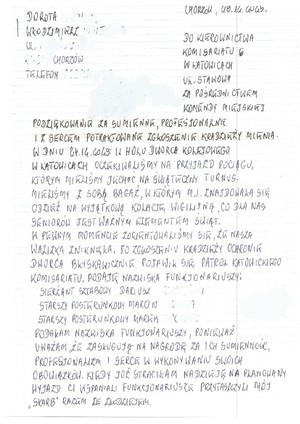 CHORZÓW,
DOROTA
WŁODZIMIERZ
CHORZÓW
TELEFON
DO KIEROWNICTWA
KOMISARIATU 6
W KATOWICACH
UL. STAWOWA
ZA POŚREDNICTWEM
KOMENDY MIEJSKIEJ
PODZIĘKOWANIE ZA SUMIENNE, PROFESJONALNE
I Z SERCEM POTRAKTOWANE ZGŁOSZENIE KRADZIEŻY MIENIA.
W DNIU W HOLU DWORCA KOLEJOWEGO
W KATOWICACH OCZEKIWALIŚMY NA PRZYJAZD POCIĄGU,
KTÓRYM MIELIŚMY JECHAĆ NA ŚWIĄTECZNY TURNUS.
MIELIŚMY Z SOBĄ BAGAŻ, W KTÓRYM M.J. ZNAJDOWAŁA SIĘ
ODZIEŻ NA WYJĄTKOWĄ KOLACJĘ WIGILIJNĄ, CO DLA NAS
SENIORÓW JEST WAŻNYM ELEMENTEM ŚWIĄT.
W PEWNYM MOMENCIE ZORIENTOWALIŚMY SIĘ, ŻE NASZA
WALIZKA ZNIKNĘŁA. PO ZGŁOSZENIU KRADZIEŻY OCHRONIE
DWORCA BŁYSKAWICZNIE POJAWIŁ SIĘ PATROL KATOWICKIEGO
KOMISARIATU. PODAJĘ NAZWISKA FUNKCJONARIUSZY:
SIERŻANT SZTABOWY DARIUSZ
STARSZY POSTERUNKOWY MARCIN
STARSZY POSTERUNKOWY MAREK
PODAŁAM NAZWISKA FUNKCJONARIUSZY, PONIEWAŻ
UWAŻAM, ŻE ZASŁUGUJĄ NA NAGRODĘ ZA ICH SUMIENNOŚĆ,
PROFESJONALIZM I SERCE W WYKONYWANIU SWOICH
OBOWIĄZKÓW. KIEDY JUŻ STRACIŁAM NADZIEJĘ NA PLANOWANY
WYJAZD CI WSPANIALI FUNKCJONARIUSZE PRZYTASZCZYLI MÓJ
"SKARB" RAZEM ZE ZŁODZIEJEM.